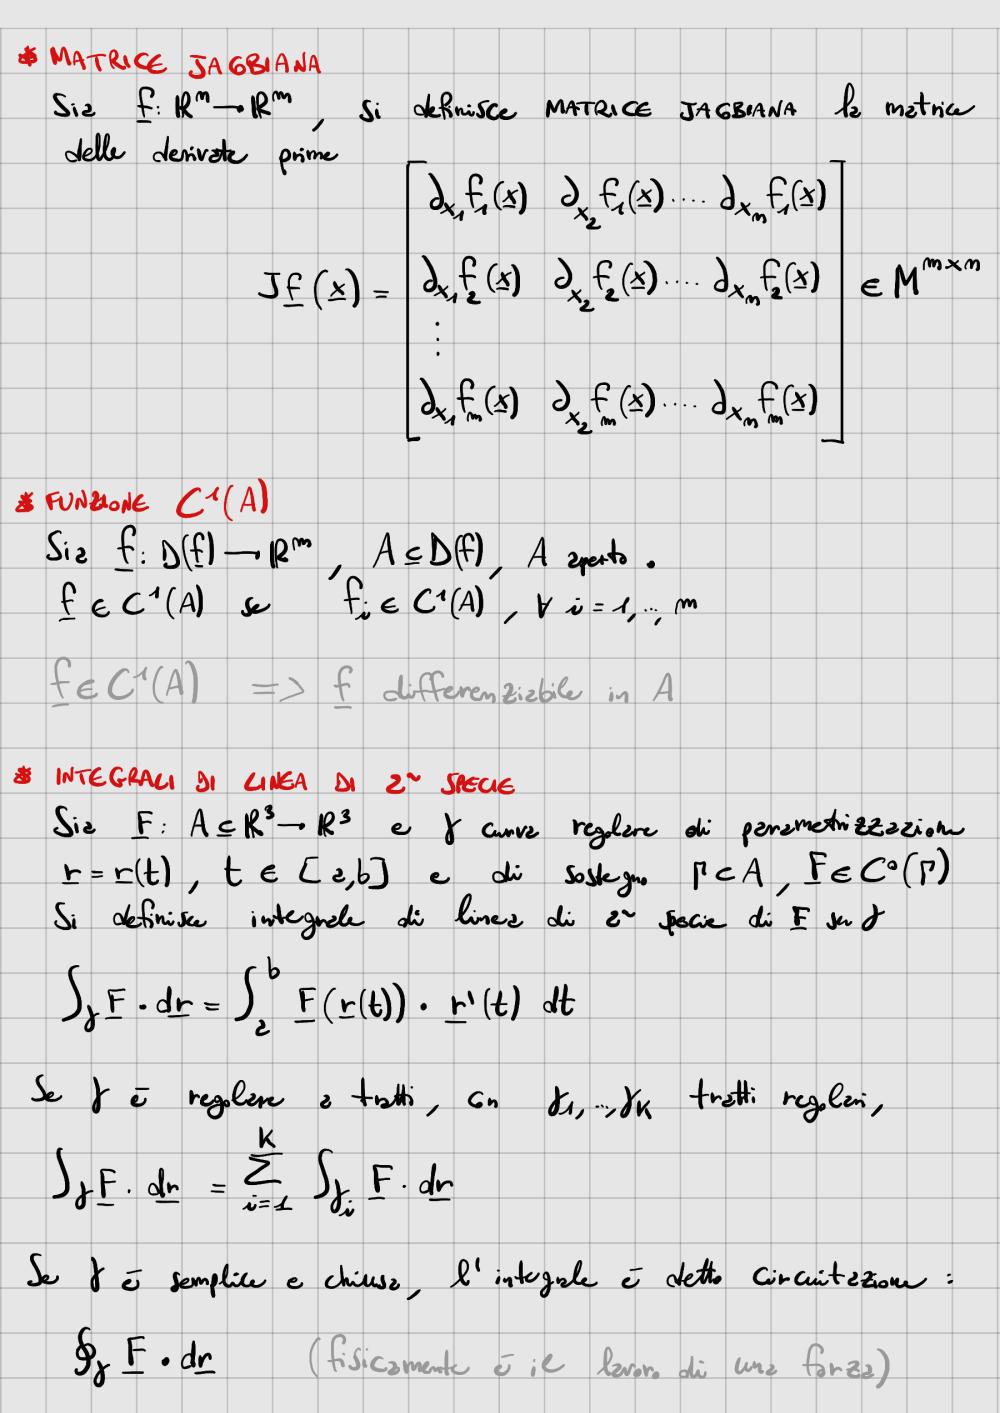 * MATRICE JACOBIANA
Sia f: ℝⁿ → ℝᵐ, si definisce MATRICE JACOBIANA la matrice
delle derivate prime
∂x₁f₁(x) ∂x₂f₁(x) .... ∂xₙf₁(x)
Jf(x) = ∂x₁f₂(x) ∂x₂f₂(x) .... ∂xₙf₂(x) ∈ M^(m×n)
⋮
∂x₁fₘ(x) ∂x₂fₘ(x) .... ∂xₙfₘ(x)
* FUNZIONE C¹(A)
Sia f: D(f) → ℝᵐ, A ⊆ D(f), A aperto.
f ∈ C¹(A) se fᵢ ∈ C¹(A), ∀ i = 1, .., m
f ∈ C¹(A) => f differenziabile in A
* INTEGRALI DI LINEA DI 2~ SPECIE
Sia F: A ⊆ ℝ³ → ℝ³ e γ curva regolare di parametrizzazione
r = r(t), t ∈ [a,b] e di sostegno Γ ⊂ A, F ∈ C⁰(Γ)
Si definisce integrale di linea di 2~ specie di F su γ
∫γ F · dr = ∫ₐᵇ F(r(t)) · r'(t) dt
Se γ è regolare a tratti, con γ₁, .., γₖ tratti regolari,
∫γ F · dr = Σᵢ₌₁ᴷ ∫γᵢ F · dr
Se γ è semplice e chiusa, l'integrale è detto circuitazione:
∮γ F · dr (fisicamente è il lavoro di una forza)